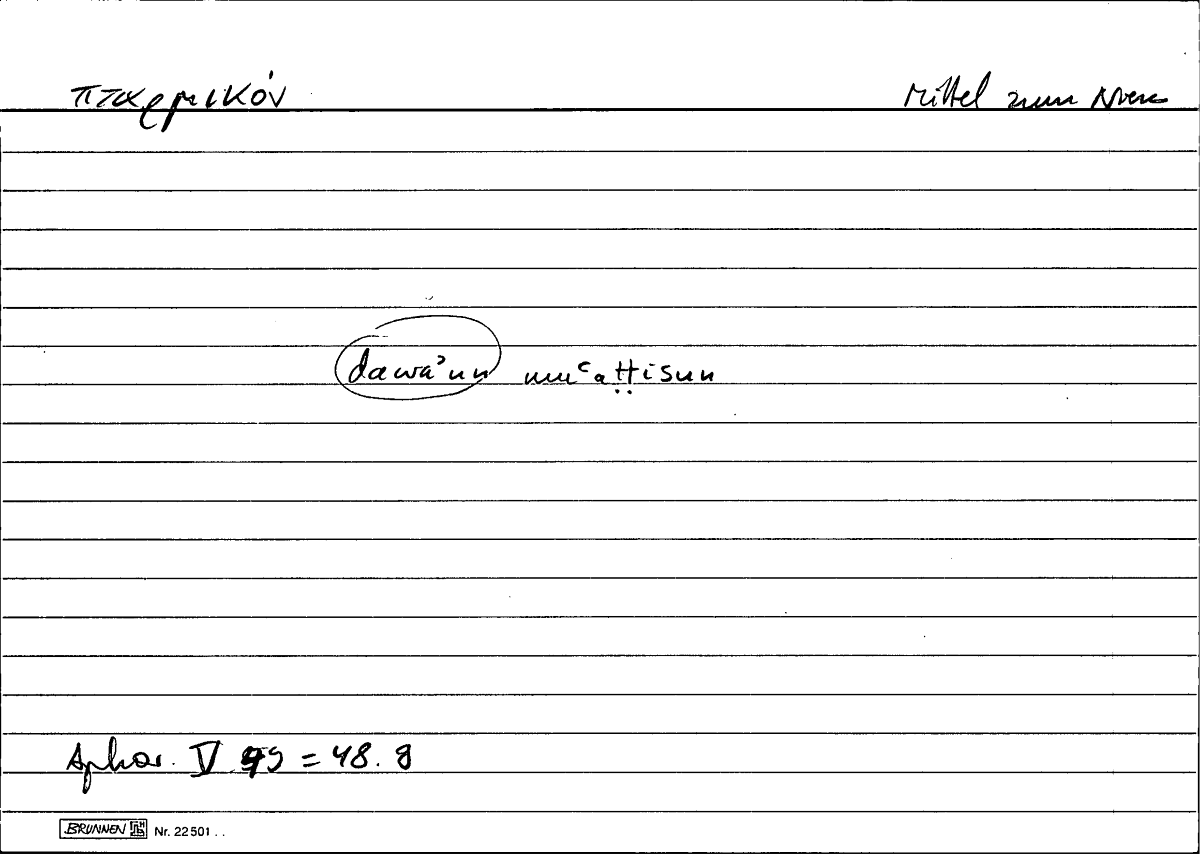 πταρμικόν Mittel zum Niesen
dawāʾun muʿaṭṭisun
Aphor. V 49 = 48. 8
BRUNNEN Nr. 22 501 . .